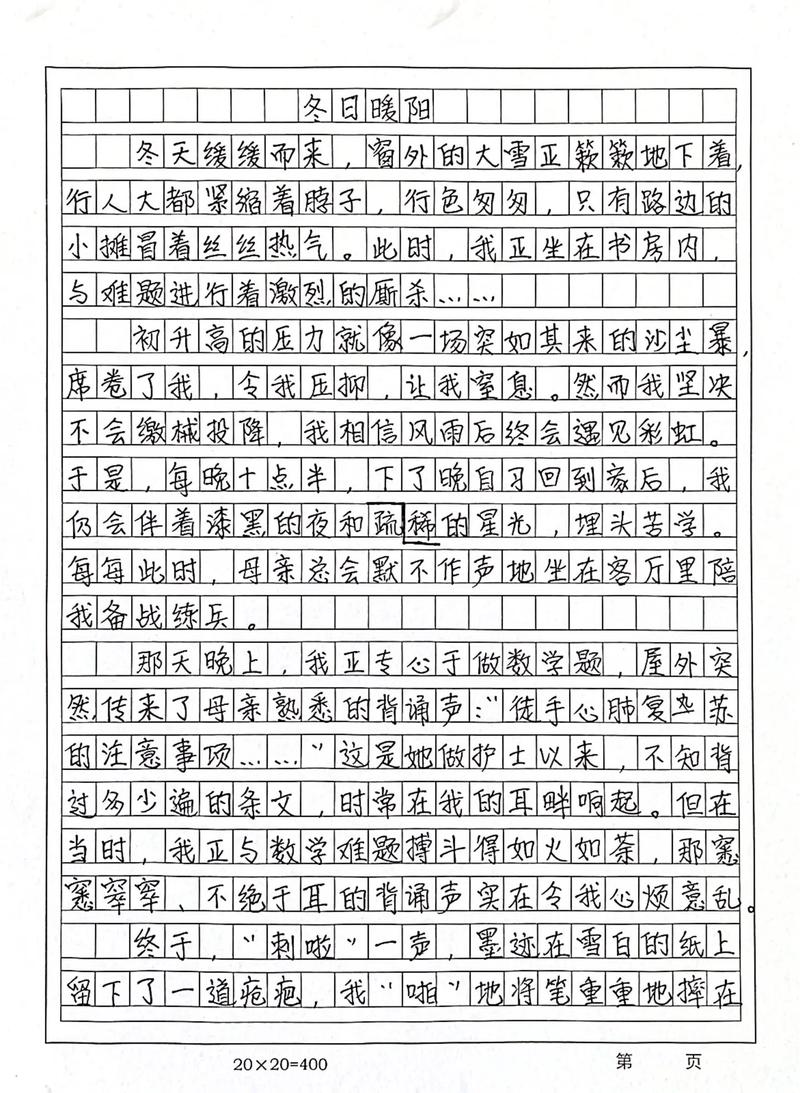 冬日暖阳
冬天缓缓而来，窗外的大雪正簌簌地下着，
行人大都紧缩着脖子，行色匆匆，只有路边的
小摊冒着丝丝热气。此时，我正坐在书房内，
与难题进行着激烈的厮杀……
初升高的压力就像一场突如其来的沙尘暴，
席卷了我，令我压抑，让我窒息。然而我坚决
不会缴械投降，我相信风雨后终会遇见彩虹。
于是，每晚十点半，下了晚自习回到家后，我
仍会伴着漆黑的夜和疏稀的星光，埋头苦学。
每每此时，母亲总会默不作声地坐在客厅里陪
我备战练兵。
那天晚上，我正专心于做数学题，屋外突
然传来了母亲熟悉的背诵声：“徒手心肺复苏
的注意事项……”这是她做护士以来，不知背
过多少遍的条文，时常在我的耳畔响起。但在
当时，我正与数学难题搏斗得如火如荼，那窸
窸窣窣、不绝于耳的背诵声实在令我心烦意乱。
终于，“刺啦”一声，墨迹在雪白的纸上
留下了一道疮疤，我“啪”地将笔重重地摔在
20×20=400 第 页